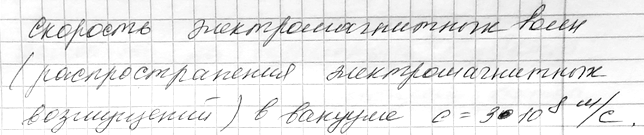 скорость электромагнитных волн
(распространения электромагнитных
возмущений) в вакууме c = 3•10⁸ м/с.